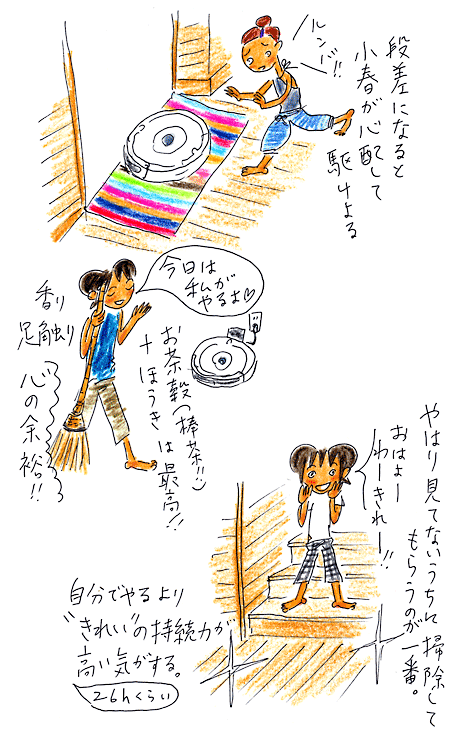 段差になると
小春が心配して
駆けよる
ルンバ!!
今日は
私が
やるよ♡
香り
足触り
心の余裕!!
お茶殻(棒茶!!)
+ほうきは最高!!
やはり見てないうちに掃除して
もらうのが一番。
おはよー
わーきれー!!
自分でやるより
"きれい"の持続力が
高い気がする。
26hくらい